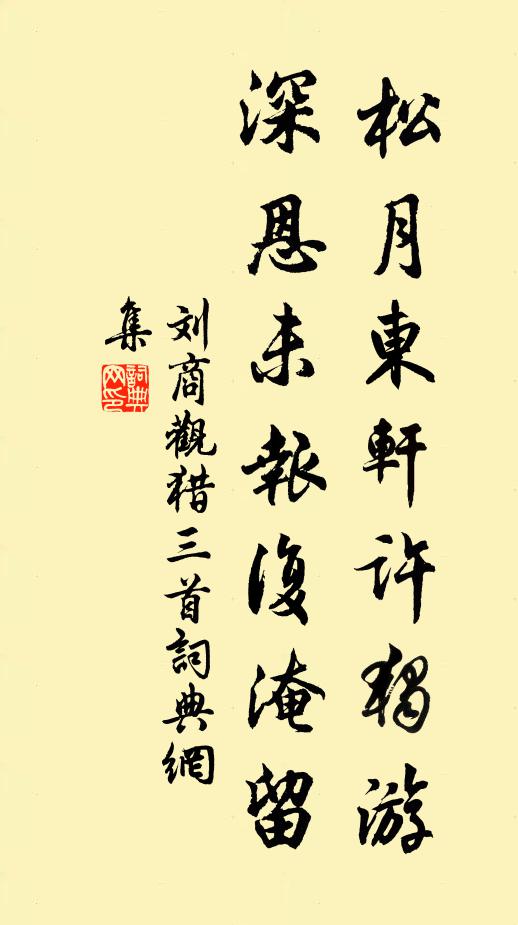 松月東軒許獨游
深恩未報復淹留
刘商觀猎三首詞典網
集
詞典
网印